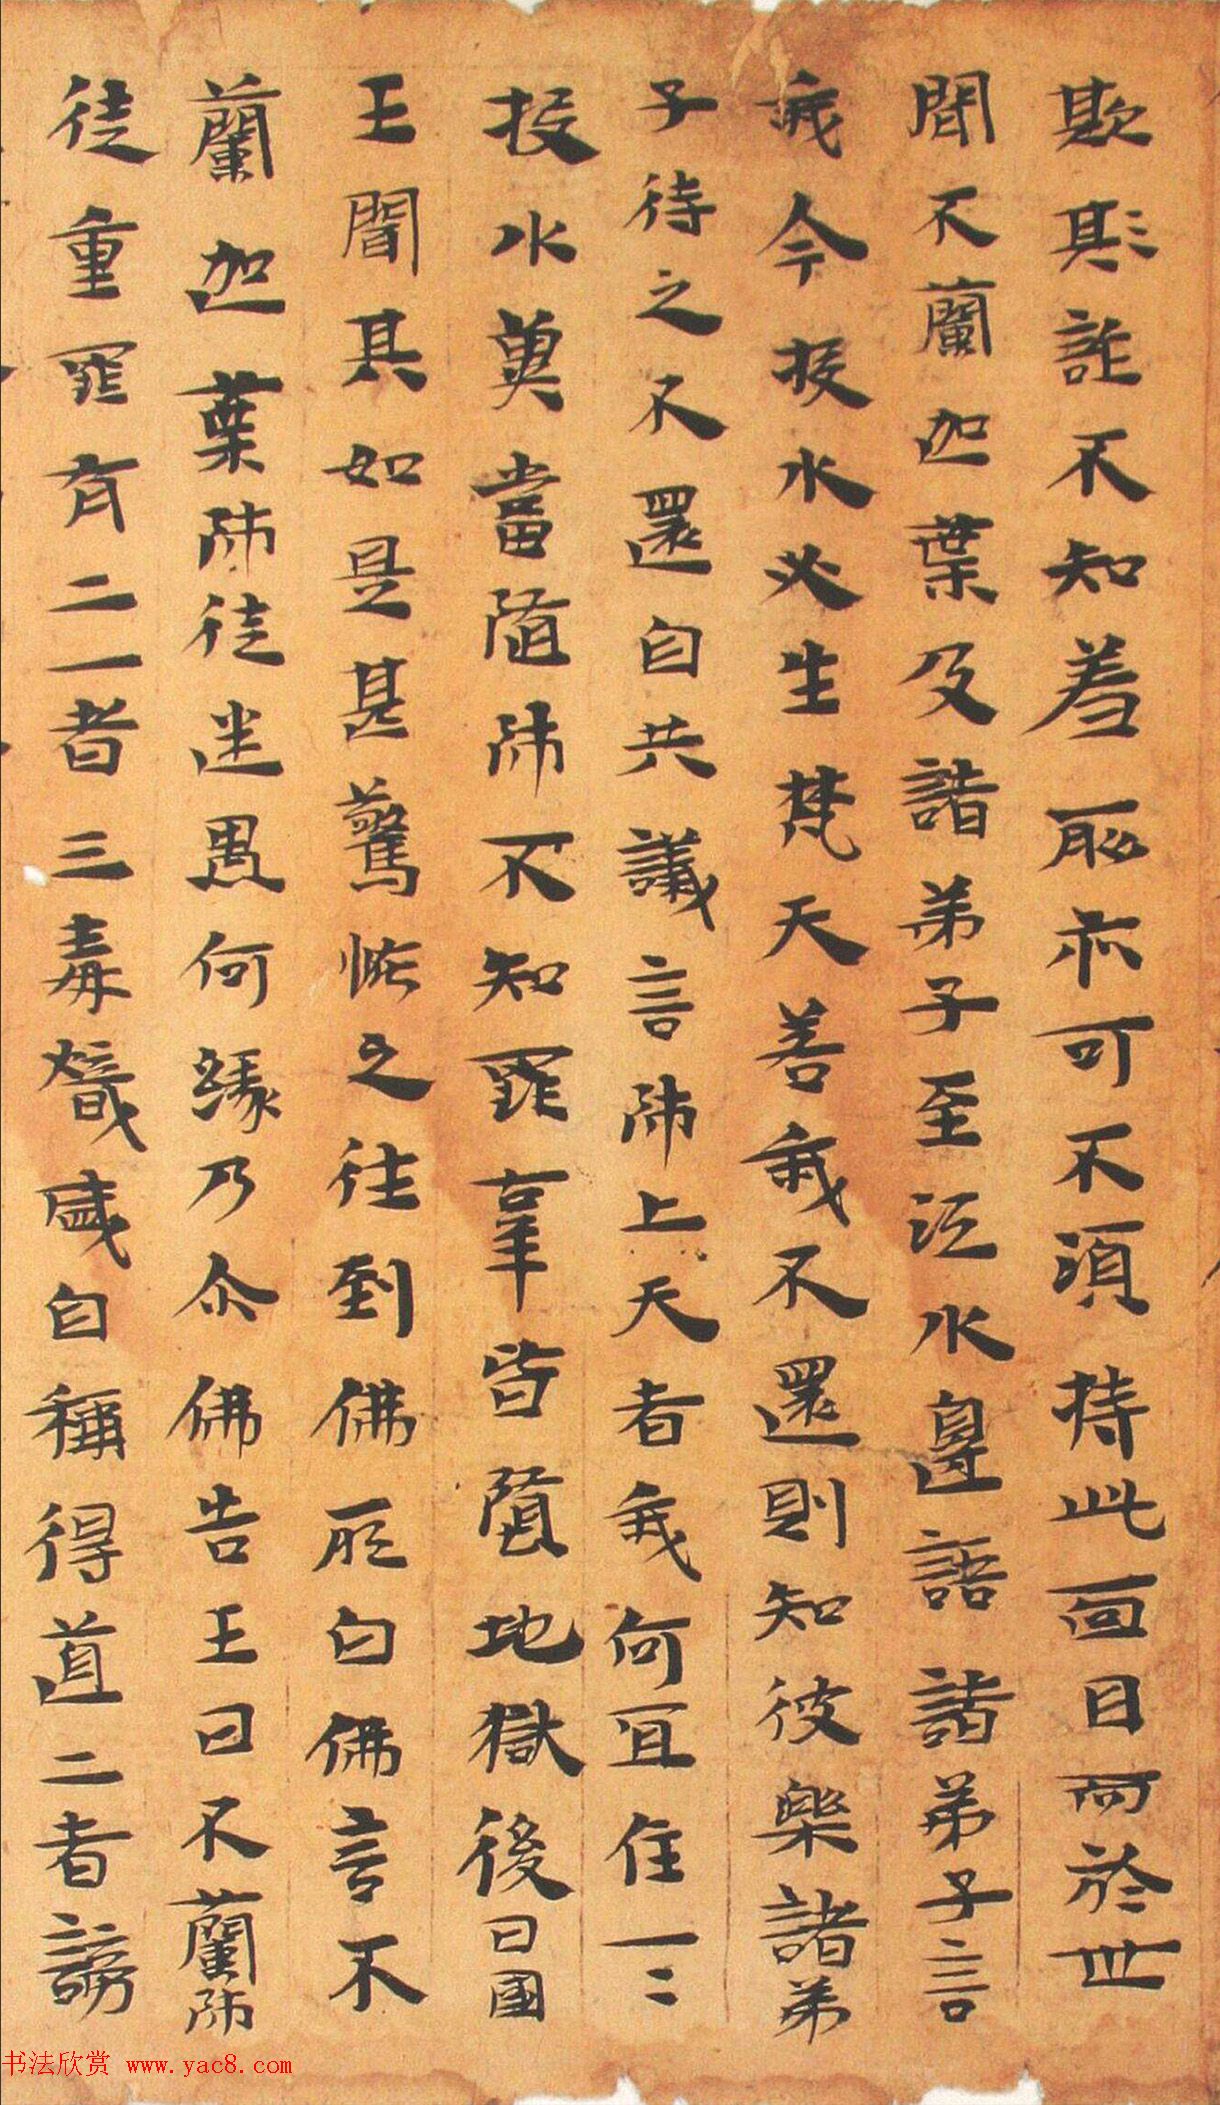 欺詐不知羞耻亦可不須持此面目而於世
間不蘭迦葉及諸弟子至江水邊語諸弟子言
我今投水必生梵天若我不還則知彼樂諸弟
子待之不還自共議言師上天者我何宜住一〻
投水冀當隨師不知罪牽皆墮地獄後日國
王聞其如是甚驚恠之往到佛所白佛言不
蘭迦葉師徒迷愚何緣乃尒佛告王曰不蘭師
徒重罪有二一者三毒熾盛自稱得道二者謗
书法欣赏 www.yac8.com